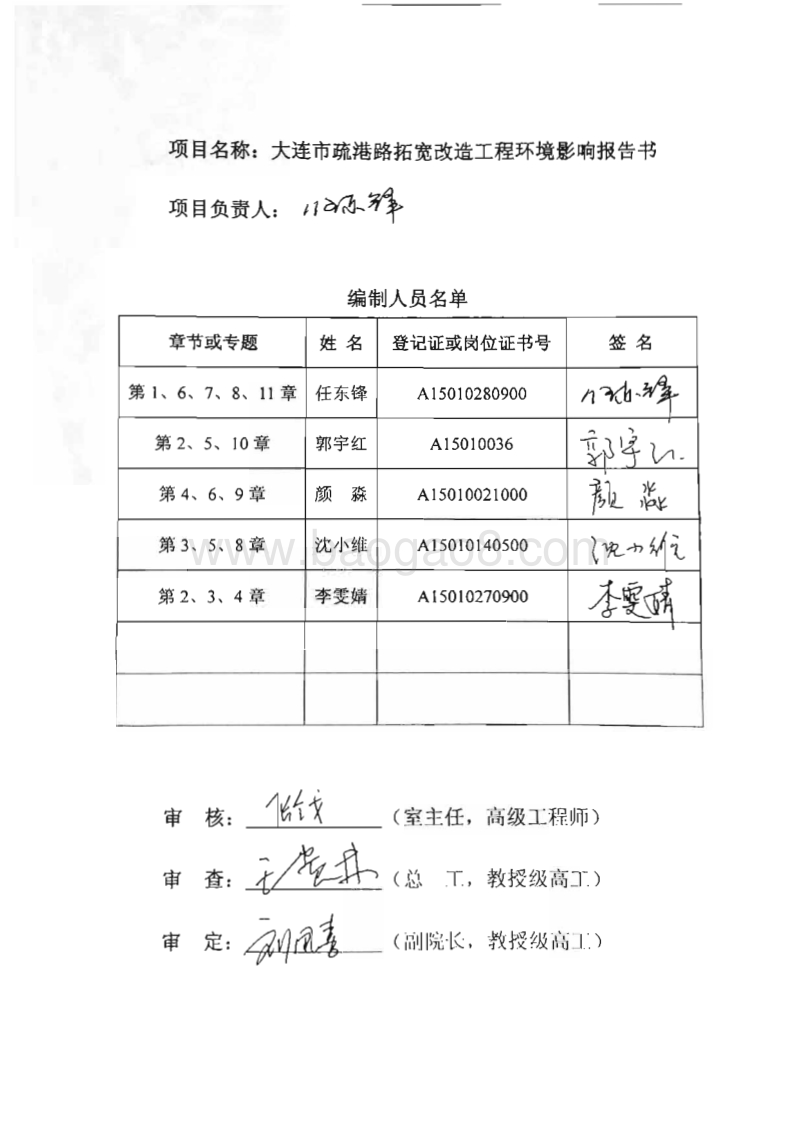 项目名称：大连市疏港路拓宽改造工程环境影响报告书
项目负责人：任东锋
编制人员名单
章节或专题 姓 名 登记证或岗位证书号 签 名
第1、6、7、8、11章 任东锋 A15010280900 任东锋
第2、5、10章 郭宇红 A15010036 郭宇红
第4、6、9章 颜 淼 A15010021000 颜淼
第3、5、8章 沈小维 A15010140500 沈小维
www.baogao8.com
第2、3、4章 李雯婧 A15010270900 李雯婧
审 核： （室主任，高级工程师）
审 查： （总 工，教授级高工）
审 定： （副院长，教授级高工）